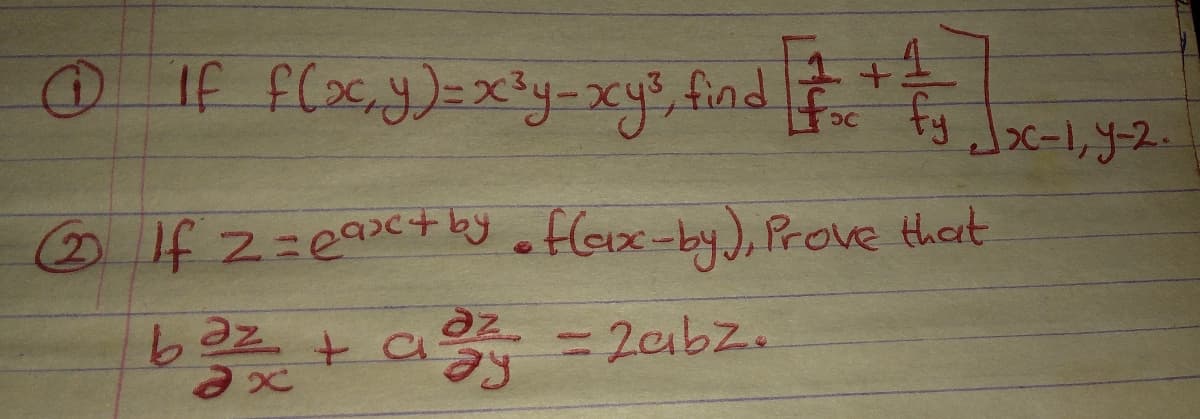 ① If f(x,y)=x³y-xy³, find [1/fx + 1/fy]x-1, y-2.
② If z=e^ax+by . f(ax-by), Prove that
b ∂z/∂x + a ∂z/∂y = 2abz.